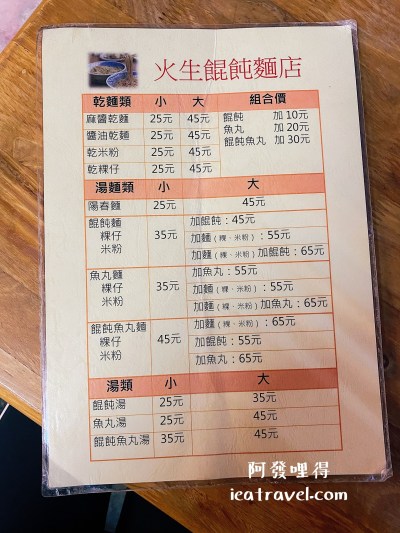 火生餛飩麵店
乾麵類 小 大 組合價
麻醬乾麵 25元 45元 餛飩 加10元
醬油乾麵 25元 45元 魚丸 加20元
乾米粉 25元 45元 餛飩魚丸 加30元
乾粿仔 25元 45元
湯麵類 小 大
陽春麵 25元 45元
餛飩麵 粿仔 米粉 35元 加餛飩:45元
加麵(粿、米粉):55元
加麵(粿、米粉)加餛飩:65元
魚丸麵 粿仔 米粉 35元 加魚丸:55元
加麵(粿、米粉):55元
加麵(粿、米粉)加魚丸:65元
餛飩魚丸麵 粿仔 米粉 45元 加麵(粿、米粉):65元
加餛飩:55元
加魚丸:65元
湯類 小 大
餛飩湯 25元 35元
魚丸湯 25元 45元
餛飩魚丸湯 35元 45元
阿發哩得
icatravel.com